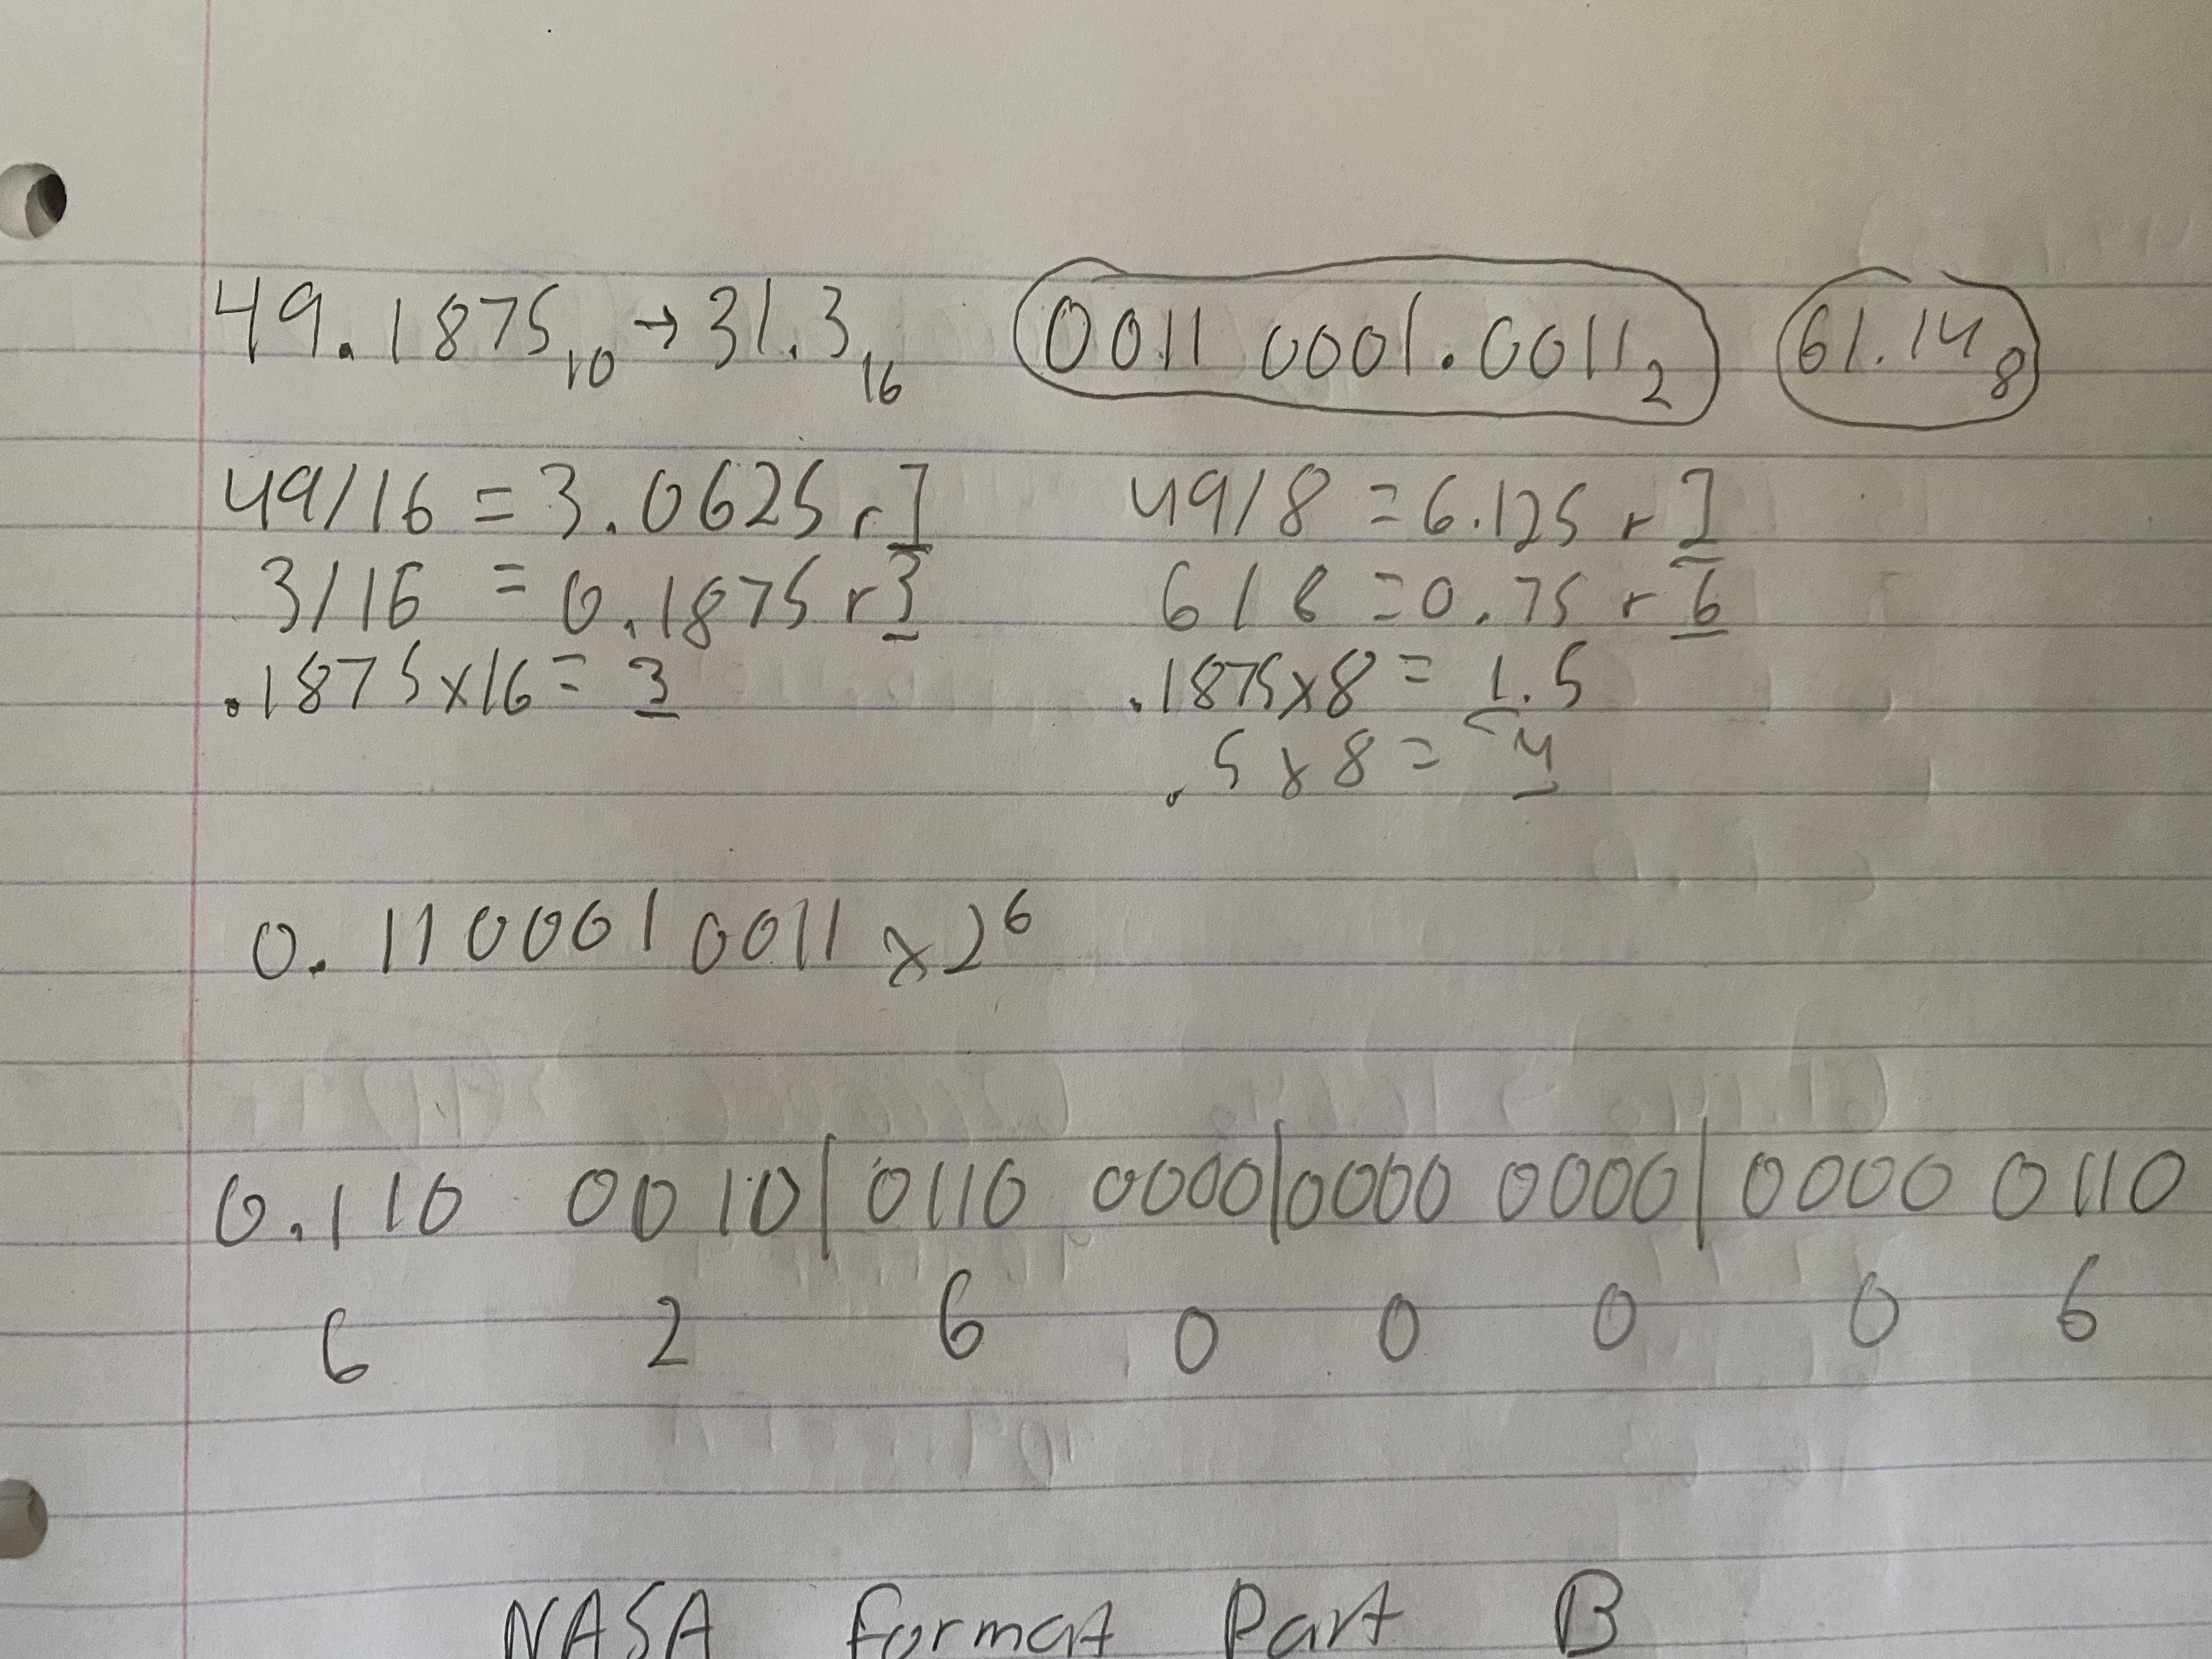 49.1875₁₀ → 31.3₁₆ 0011 0001.0011₂ 61.14₈
49/16 = 3.0625 r 1 49/8 = 6.125 r 1
3/16 = 0.1875 r 3 6/8 = 0.75 r 6
.1875x16 = 3 .1875x8 = 1.5
.5x8 = 4
0.1100010011 x 2⁶
0.110 0010|0110 0000|0000 0000|0000 0110
6 2 6 0 0 0 0 6
NASA Format Part B